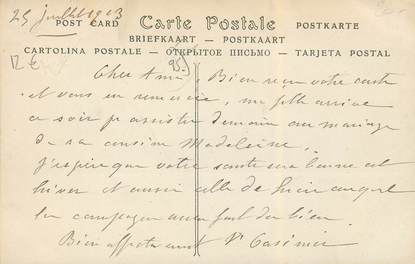 25 juillet 1913
POST CARD Carte Postale POSTKARTE
BRIEFKAART — POSTKAART
CARTOLINA POSTALE — ОТКРЫТОЕ ПИСЬМО — TARJETA POSTAL
12 €
(95)
Cher Ami, Bien reçu votre carte
et vous en remercie, ma fille arrive
ce soir pr assister demain au mariage
de sa cousine Madeleine.
J'espère que votre santé sera bonne cet
hiver et aussi celle de Lucie auquel
la campagne aura fait du bien.
Bien affectueusement Casimir